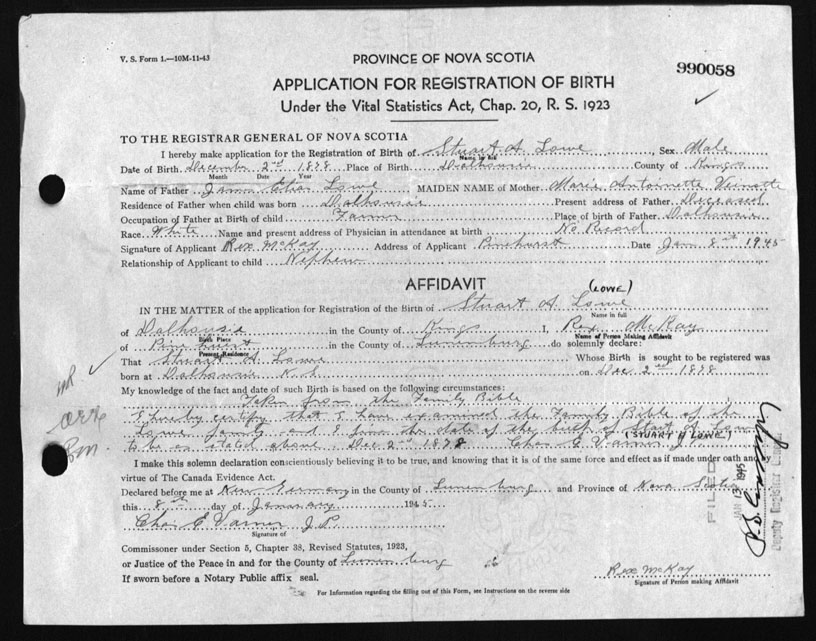 V. S. Form 1.—10M-11-43
PROVINCE OF NOVA SCOTIA
990058
APPLICATION FOR REGISTRATION OF BIRTH
Under the Vital Statistics Act, Chap. 20, R. S. 1923
TO THE REGISTRAR GENERAL OF NOVA SCOTIA
I hereby make application for the Registration of Birth of Stuart A Lowe, Sex Male
Name in full
Date of Birth December 2nd 1878 Place of Birth Dalhousie County of Kings
Month Date Year
Name of Father James Elias Lowe MAIDEN NAME of Mother Marie Antoinette
Residence of Father when child was born Dalhousie Present address of Father Deceased
Occupation of Father at Birth of child Farmer Place of birth of Father Dalhousie
Race White Name and present address of Physician in attendance at birth No Record
Signature of Applicant Rex McKay Address of Applicant Pinehurst Date Jan 8th 1945
Relationship of Applicant to child Nephew
AFFIDAVIT
(LOWE)
IN THE MATTER of the application for Registration of the Birth of Stuart A Lowe
Name in full
of Dalhousie in the County of Kings I, Rex McKay
Birth Place Name of Person Making Affidavit
of Pinehurst in the County of Lunenburg do solemnly declare:
Present Residence
That Stuart A Lowe Whose Birth is sought to be registered was
born at Dalhousie N.S. on Dec 2nd 1878
My knowledge of the fact and date of such Birth is based on the following circumstances:
Taken from the Family Bible
I hereby certify that I have examined the Family Bible of the
Lowe family and I find the date of the birth of Stuart A Lowe
to be as stated above, Dec 2nd 1878 Chas E Varner
(STUART A LOWE)
I make this solemn declaration conscientiously believing it to be true, and knowing that it is of the same force and effect as if made under oath and
virtue of The Canada Evidence Act.
Declared before me at New Germany in the County of Lunenburg and Province of Nova Scotia
this 8th day of January 1945
Chas E Varner J.P.
Signature of
Commissoner under Section 5, Chapter 38, Revised Statutes, 1923,
or Justice of the Peace in and for the County of Lunenburg
If sworn before a Notary Public affix seal.
Rex McKay
Signature of Person making Affidavit
For Information regarding the filling out of this Form, see Instructions on the reverse side
FILED
JAN 13 1945
Deputy Registrar General